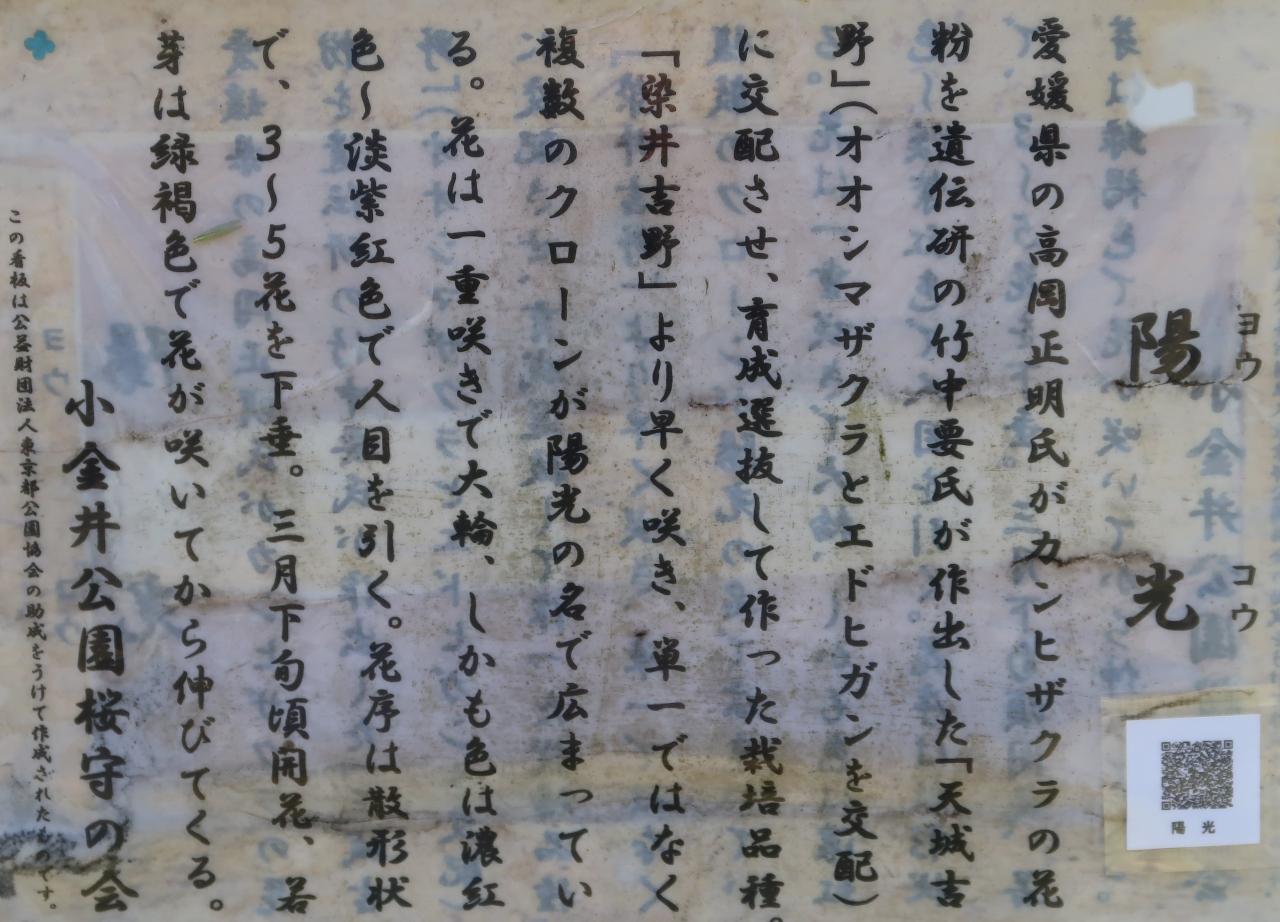 陽光
ヨウ コウ
愛媛県の高岡正明氏がカンヒザクラの花
粉を遺伝研の竹中要氏が作出した「天城吉
野」（オオシマザクラとエドヒガンを交配）
に交配させ、育成選抜して作った栽培品種。
「染井吉野」より早く咲き、単一ではなく
複数のクローンが陽光の名で広まってい
る。花は一重咲きで大輪、しかも色は濃紅
色～淡紫紅色で人目を引く。花序は散形状
で、3～5花を下垂。三月下旬頃開花、若
芽は緑褐色で花が咲いてから伸びてくる。
小金井公園桜守の会
この看板は公益財団法人東京都公園協会の助成をうけて作成されたものです。
陽光